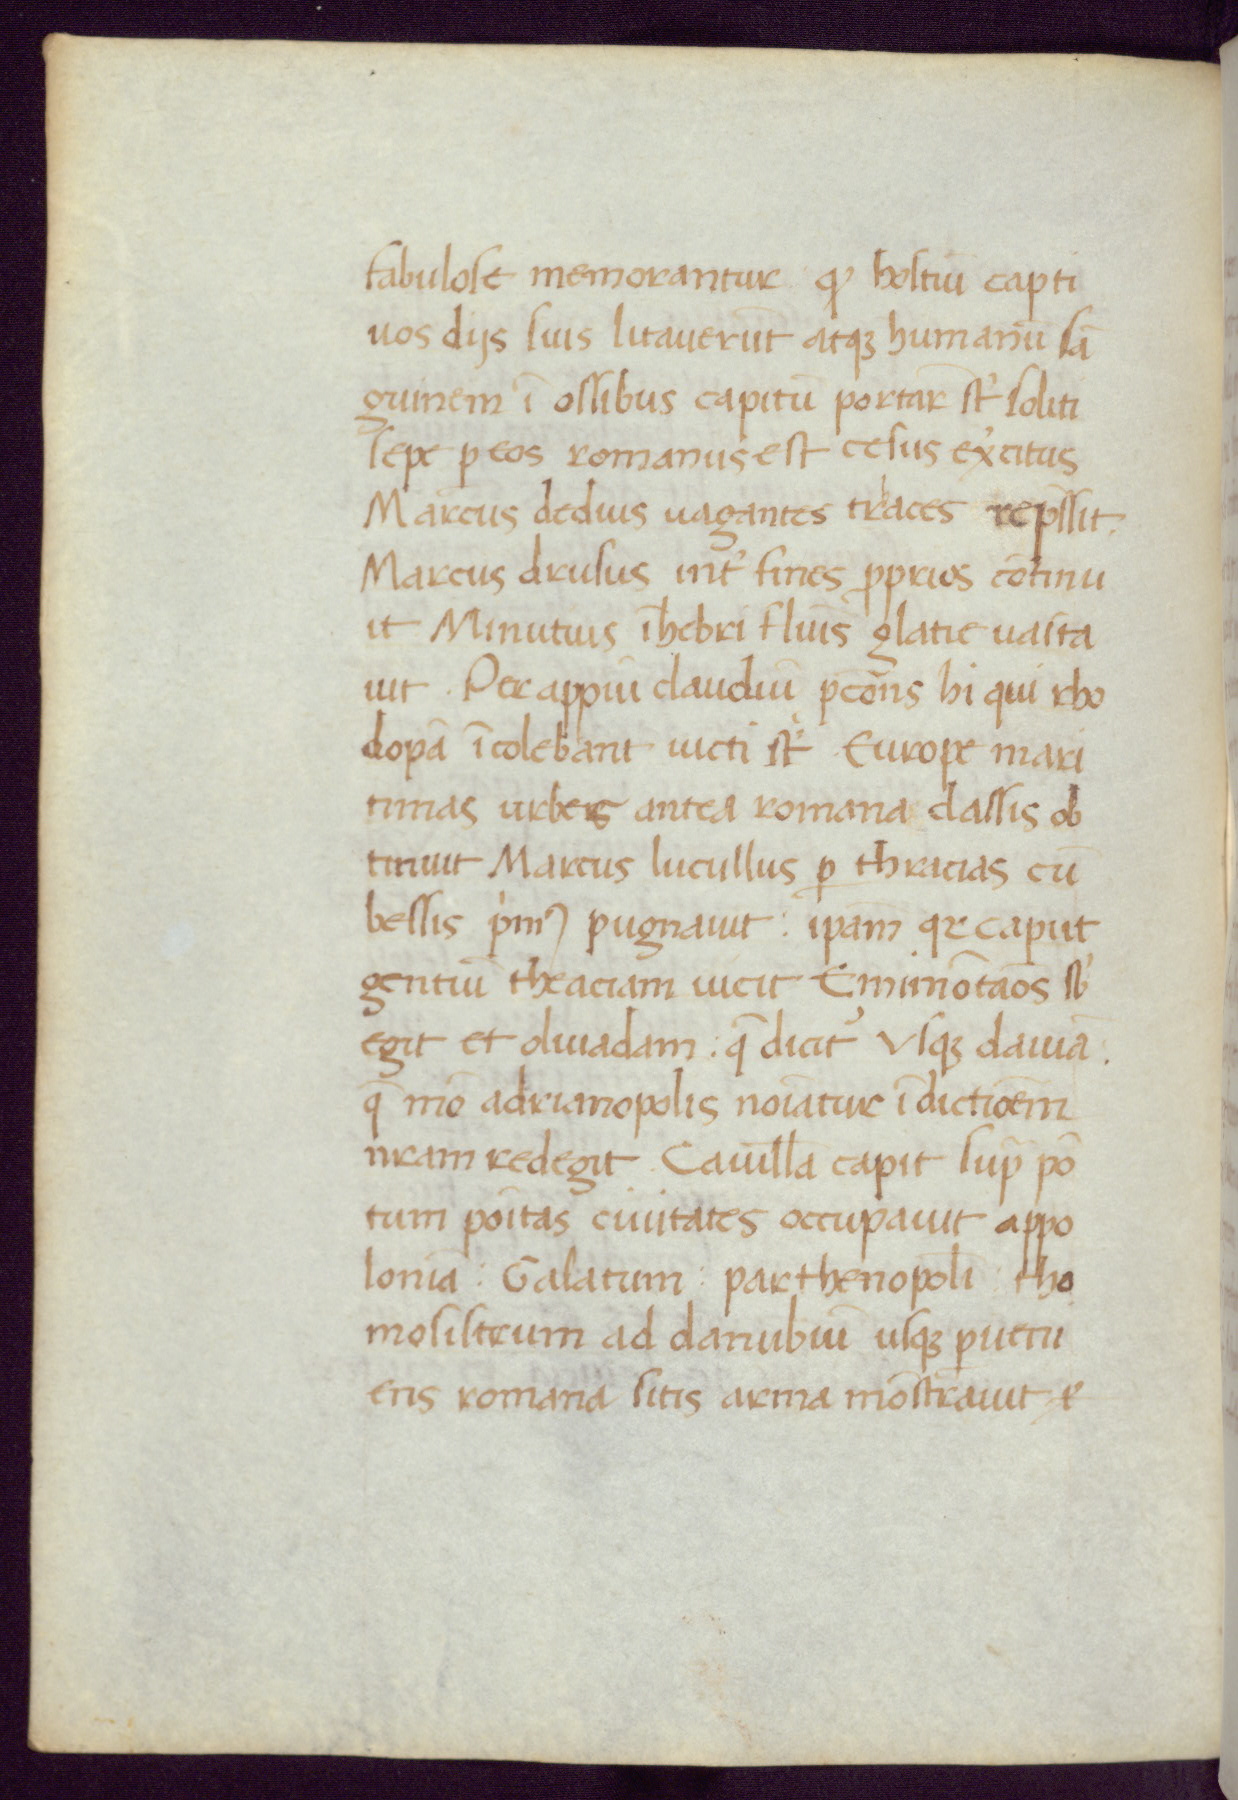 fabulose memorantur qͥ hostiū capti
uos dijs suis litauerūt atqꝫ humanū sā
guinem ī ossibus capitū portar̄ st̓ soliti
sepe ꝑ eos romanus est cesus ex̓citus
Marcus dedius uagantes traces rep̄ssit.
Marcus drusus int̓ fines ꝓprios cōtinu
it Minutius ī hebri fluīs glatie uasta
uit . Per appiū claudiū ꝓcōns hi qui rho
dopā īcolebant uicti st̓ Europe mari
timas urbes antea romana classis ob
tinuit Marcus lucullus ꝑ thracias cū
bessis p̓mꝰ pugnauit : ip̄am qꝫ caput
gentiū theaciam uicit Emimōtāos sb̓
egit et oliuadam : q̄ dicit᷑ Vsqꝫ dauiā .
q̄ mō adrianopolis noīatur ī dictiōem
nr̄am redegit . Cauillā capit sup̄ pō
tum poītas ciuitates occupauit appo
loniā : Galatum : parthenopolī : tho
mosistrum ad danubiū usqꝫ ꝑuetu
ens romana sitis arma mōstrauit &